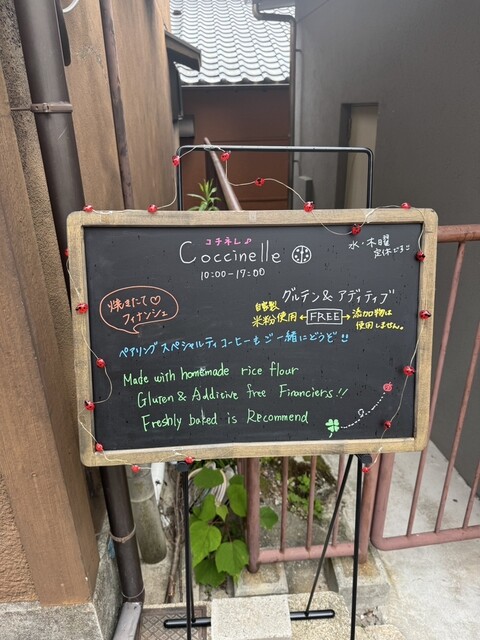 コチネレ♪
Coccinelle
10:00-17:00
水・木曜
定休です
焼きたて♡
フィナンシェ
グルテン & アディティブ
自家製
米粉使用 ← FREE → 添加物は
使用しません。
ペアリングスペシャルティコーヒーもご一緒にどうぞ!!
Made with homemade rice flour
Gluten & Additive free Financiers!!
Freshly baked is Recommend